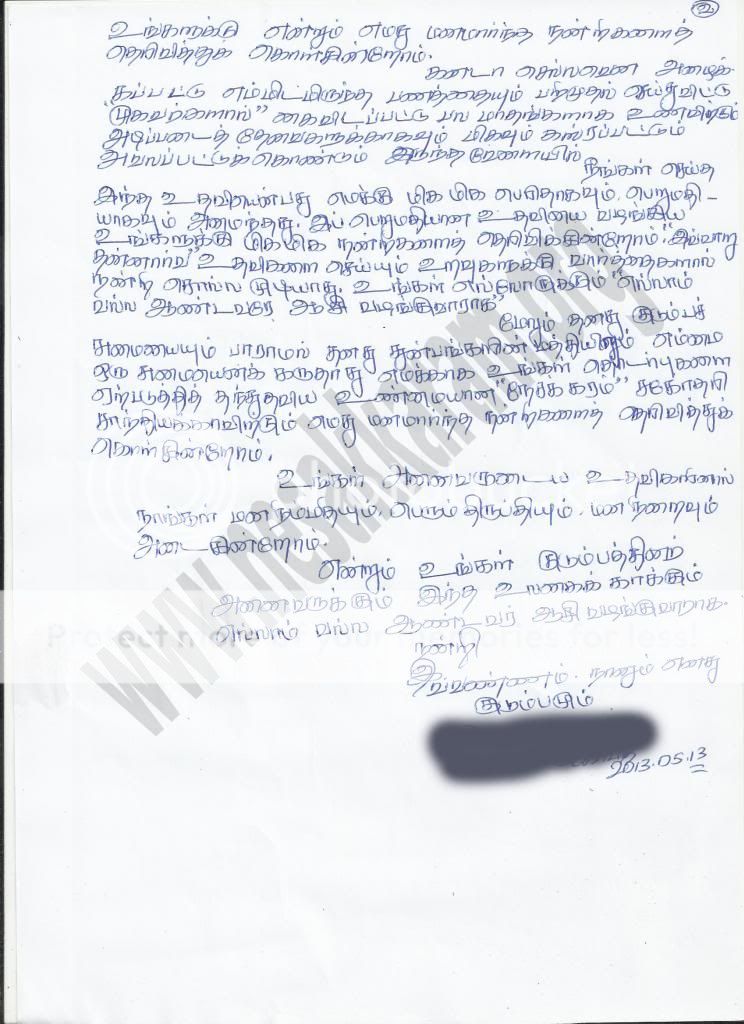 2
உங்களுக்கு என்றும் எமது மனமார்ந்த நன்றிகளைத்
தெரிவித்துக் கொள்கின்றோம்.
கனடா செல்லவென அழைக்
கப்பட்டு எம்மிடமிருந்த பணத்தையும் பறிமுதல் செய்துவிட்டு
"முகவர்களால்" கைவிடப்பட்டு பல மாதங்களாக உணவிற்கும்
அடிப்படைத் தேவைகளுக்காகவும் மிகவும் கஸ்ரப்பட்டும்
அவலப்பட்டுக்கொண்டும் இருந்தவேளையில்
நீங்கள் செய்த
இந்த உதவியென்பது எமக்கு மிக மிக பெரிதாகவும், பெறுமதி-
யாகவும் அமைந்தது. இப் பெறுமதியான உதவியை வழங்கிய
உங்களுக்கு மிகமிக நன்றிகளைத் தெரிவிக்கின்றோம். "இவ்வாறு
தன்னார்வ" உதவிகளை செய்யும் உறவுகளுக்கு வார்த்தைகளால்
நன்றி சொல்ல முடியாது. உங்கள் எல்லோருக்கும் "எல்லாம்
வல்ல ஆண்டவரே ஆசி வழங்குவாராக"
மேலும் தனது குடும்பச்
சுமையையும் பாராமல் தனது துன்பங்களின் மத்தியிலும் எம்மை
ஒரு சுமையெனக் கருதாது எமக்காக உங்கள் தொடர்புகளை
ஏற்படுத்தித் தந்துதவிய உண்மையான "நேசக் கரம்" சகோதரி
சாந்தியக்காவிற்கும் எமது மனமார்ந்த நன்றிகளைத் தெரிவித்துக்
கொள்கின்றோம்.
உங்கள் அனைவருடைய உதவிகளினால்
நாங்கள் மன நிம்மதியும், பெரும் திருப்தியும், மன நிறைவும்
அடைகின்றோம்.
என்றும் உங்கள் குடும்பத்தினர்
அனைவருக்கும் இந்த உலகைக் காக்கும்
எல்லாம் வல்ல ஆண்டவர் ஆசி வழங்குவாராக.
நன்றி
இவ்வண்ணம், நானும் எனது
குடும்பமும்
2013.05.13
www.nesakkaram.org
Protect more of your memories for less!